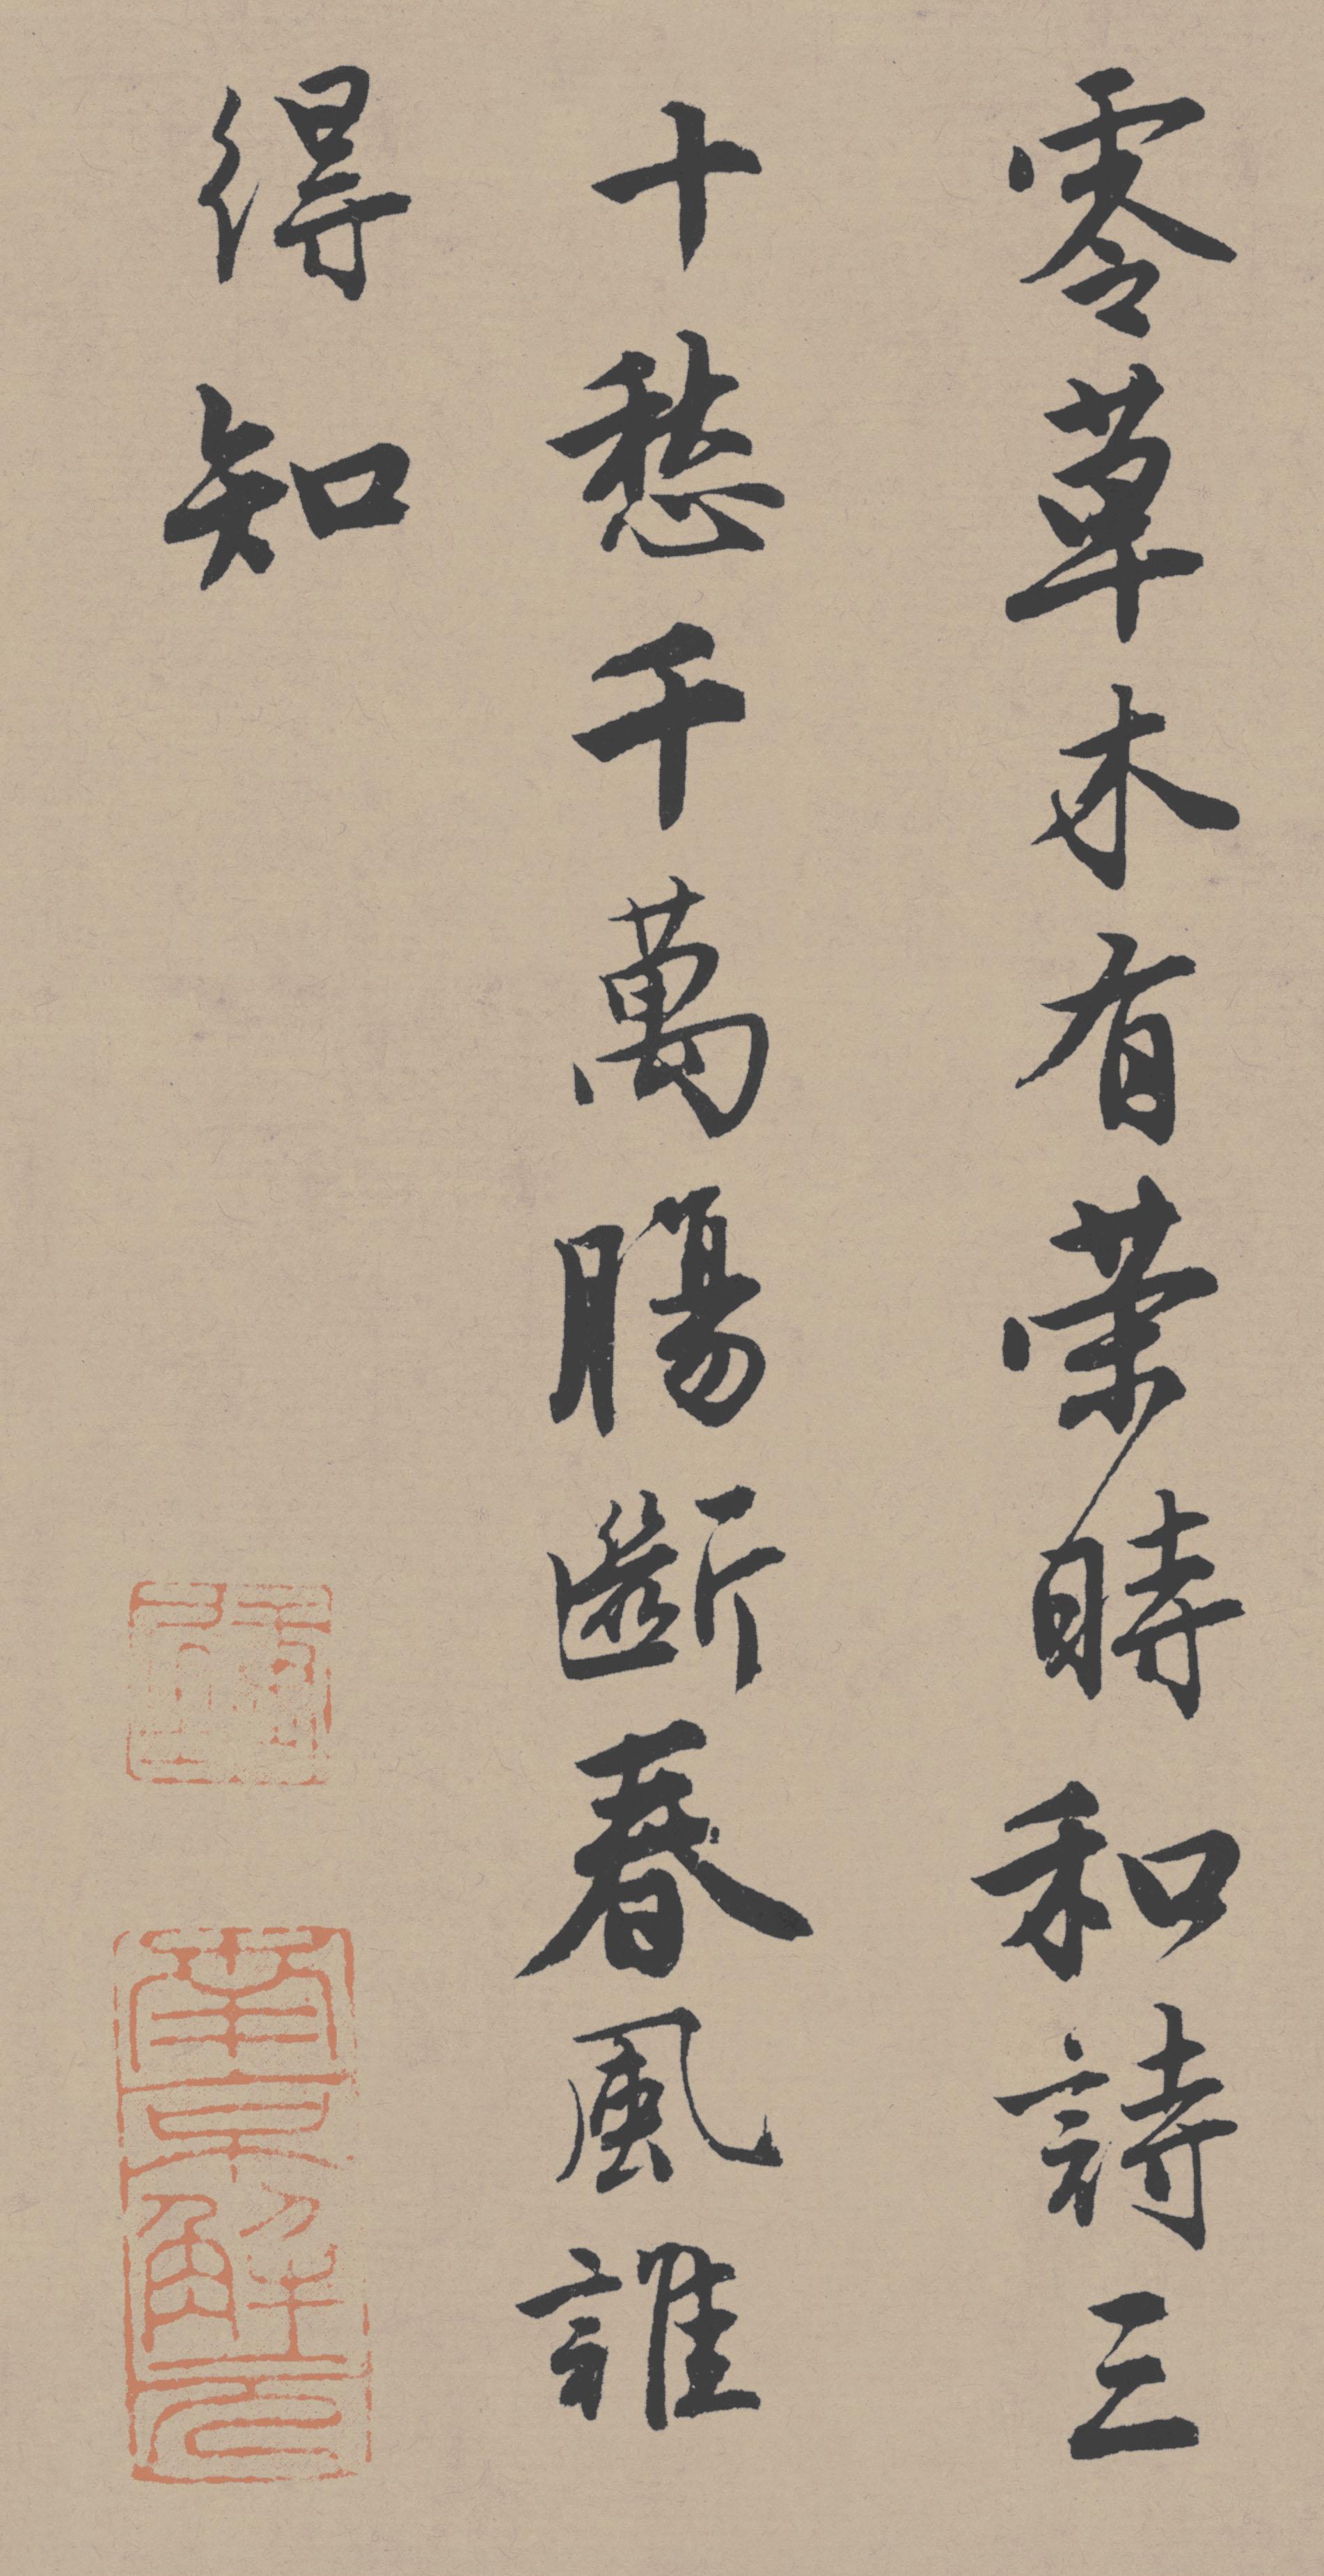 零草木有荣時和詩三
十愁千萬腸斷春風誰
得知
南京解元